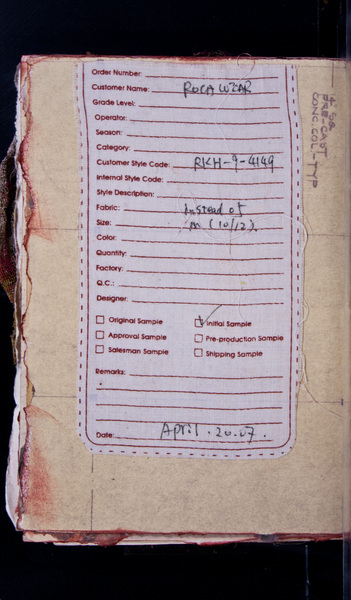 Order Number:
Customer Name: ROCA WEAR
Grade Level:
Operator:
Season:
Category:
Customer Style Code: RKH-9-4149
Internal Style Code:
Style Description:
Fabric: instead of
Size: m (10/12).
Color:
Quantity:
Factory:
Q.C.:
Designer:
Original Sample
Initial Sample
Approval Sample
Pre-production Sample
Salesman Sample
Shipping Sample
Remarks:
Date: April. 20.07.
PRE-CAST
CONC. COL-TYP